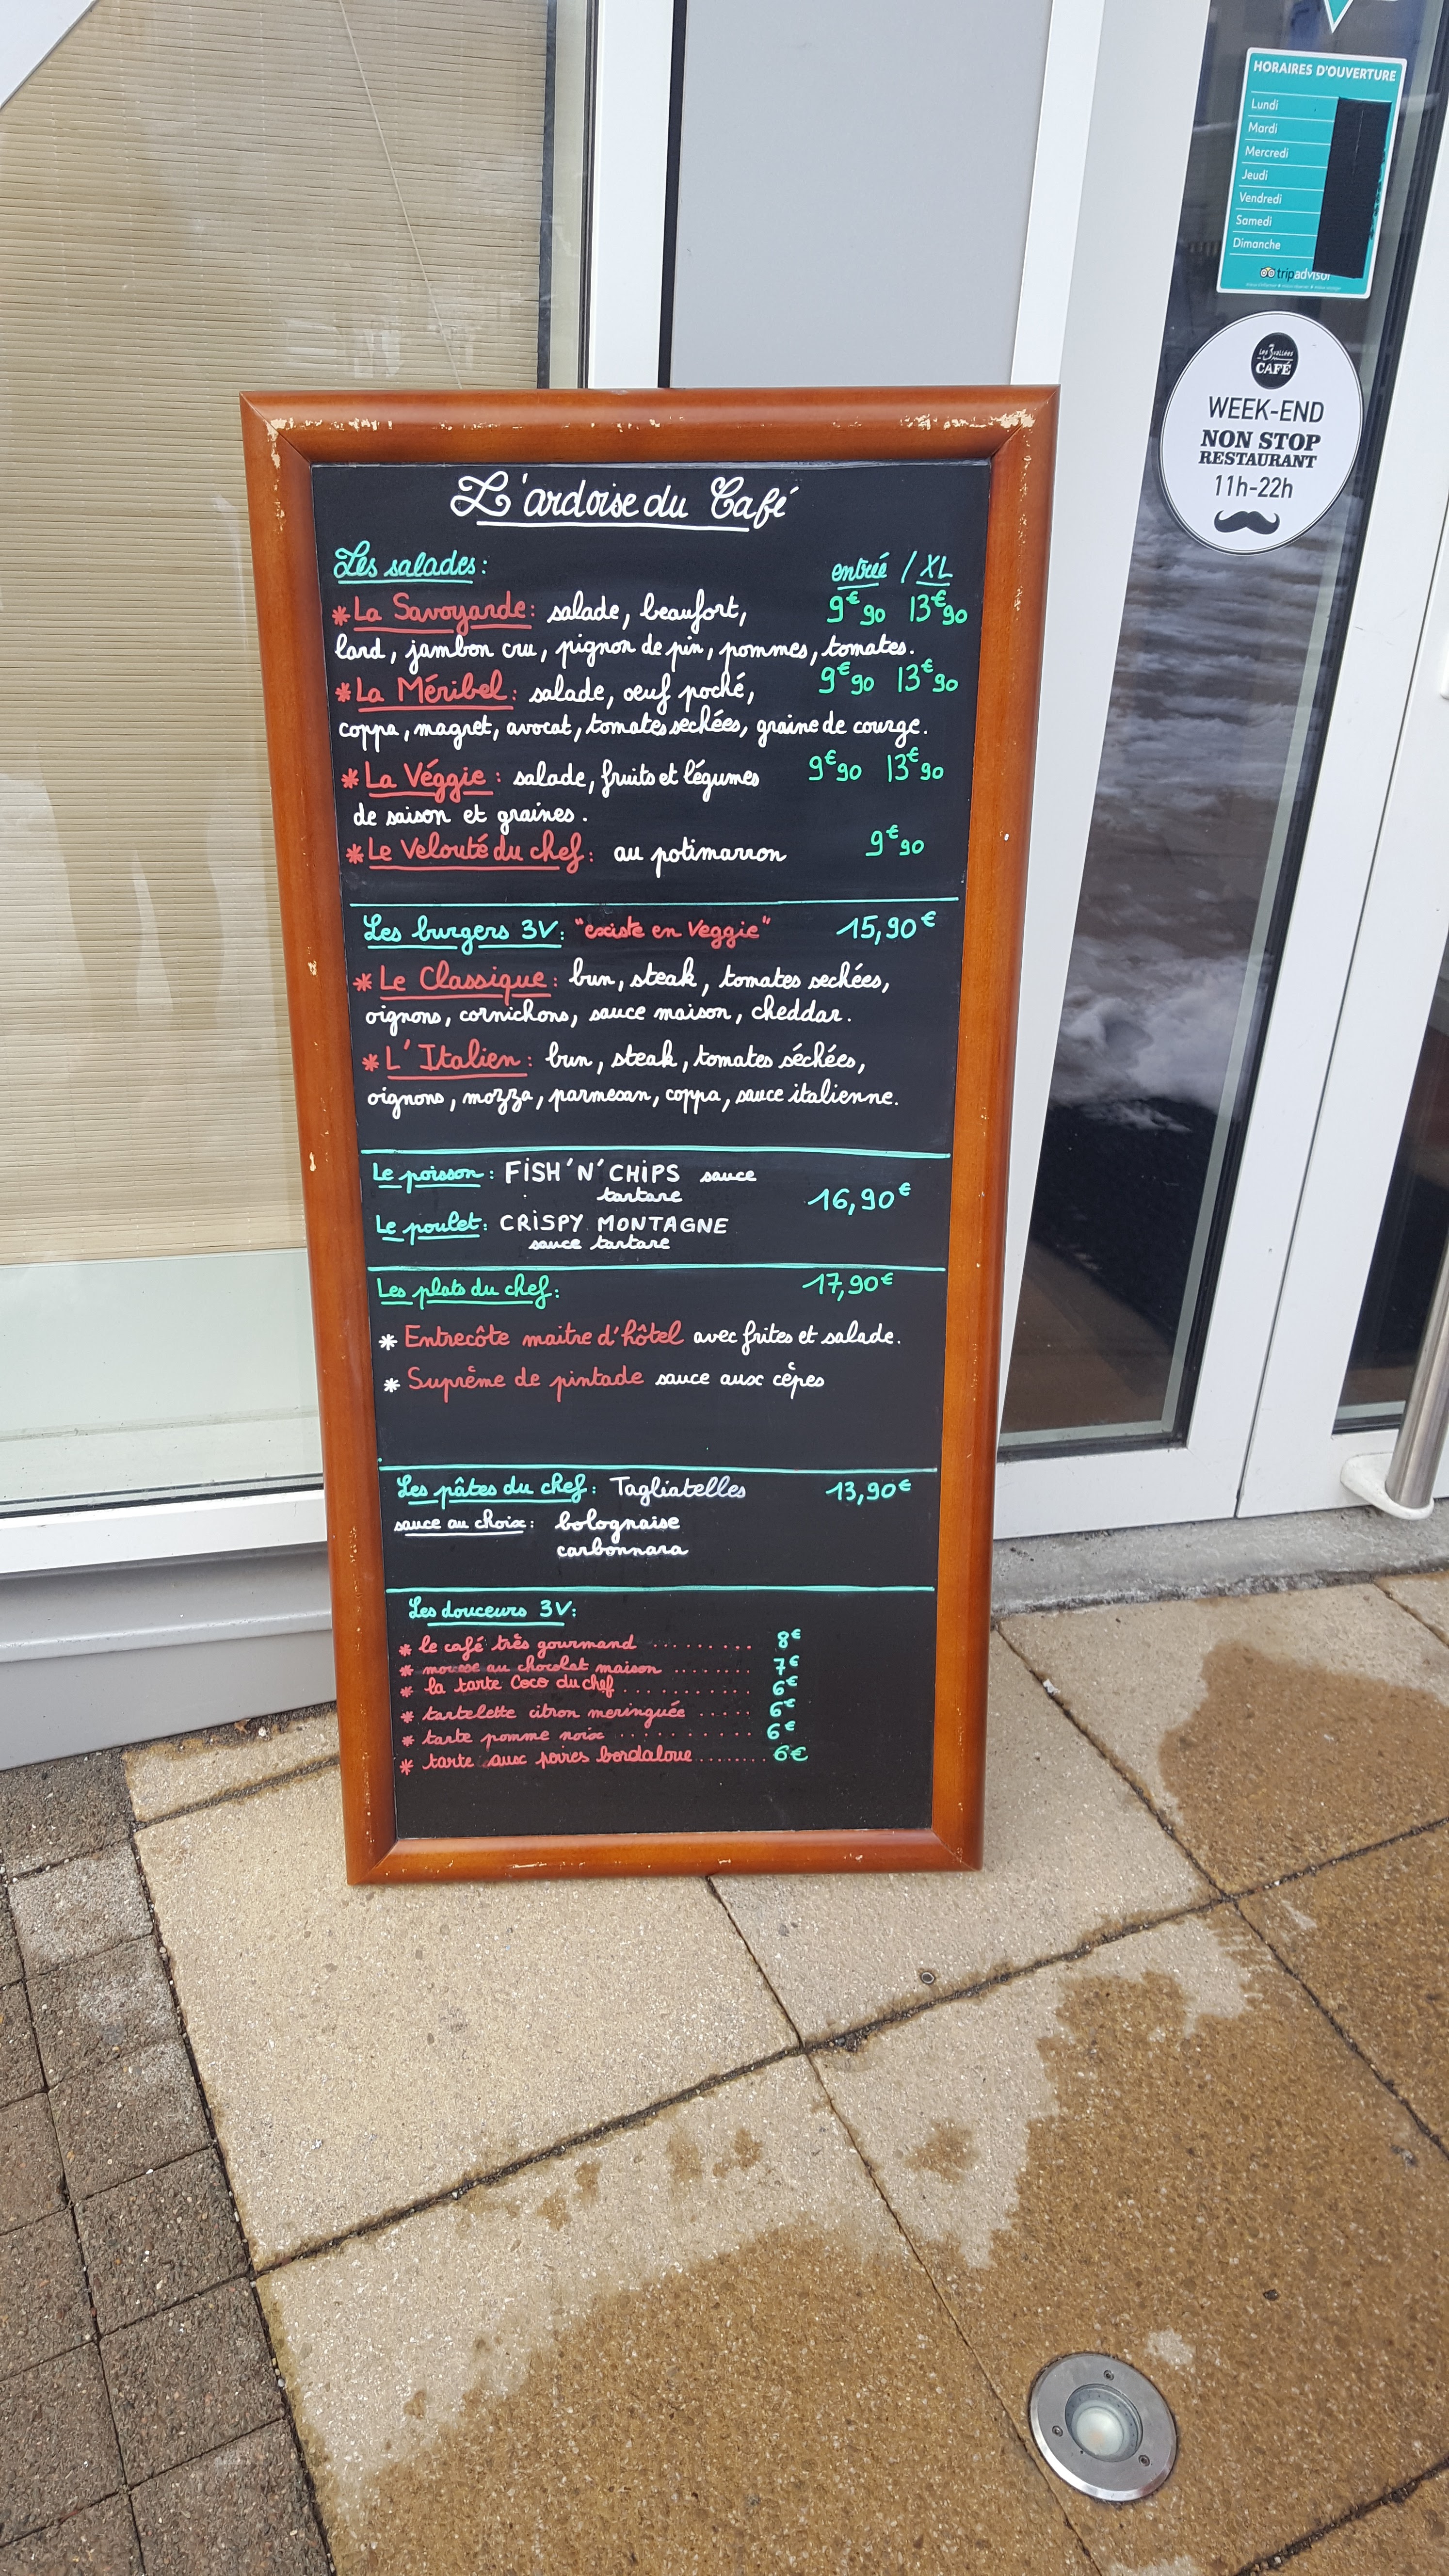 L'ardoise du Café
Les salades: entrée / XL
* La Savoyarde: salade, beaufort, 9€90 13€90
lard, jambon cru, pignon de pin, pommes, tomates.
* La Méribel: salade, oeuf poché, 9€90 13€90
coppa, magret, avocat, tomates sechées, graine de courge.
* La Véggie: salade, fruits et légumes 9€90 13€90
de saison et graines.
* Le Velouté du chef: au potimarron 9€90
Les burgers 3V: "existe en Veggie" 15,90€
* Le Classique: bun, steak, tomates sechées,
oignons, cornichons, sauce maison, cheddar.
* L'Italien: bun, steak, tomates séchées,
oignons, mozza, parmesan, coppa, sauce italienne.
Le poisson: FISH'N'CHIPS sauce
tartare 16,90€
Le poulet: CRISPY MONTAGNE
sauce tartare
Les plats du chef: 17,90€
* Entrecôte maitre d'hôtel avec frites et salade.
* Suprême de pintade sauce aux cêpes
Les pâtes du chef: Tagliatelles 13,90€
sauce au choix: bolognaise
carbonnara
Les douceurs 3V:
* le café très gourmand .......... 8€
* mousse au chocolat maison ........ 7€
* la tarte Coco du chef ........... 6€
* tartelette citron meringuée ..... 6€
* tarte pomme noix ........... 6€
* tarte aux poires bordaloue ........ 6€
HORAIRES D'OUVERTURE
Lundi
Mardi
Mercredi
Jeudi
Vendredi
Samedi
Dimanche
tripadvisor
Les 3 vallées
CAFÉ
WEEK-END
NON STOP
RESTAURANT
11h-22h